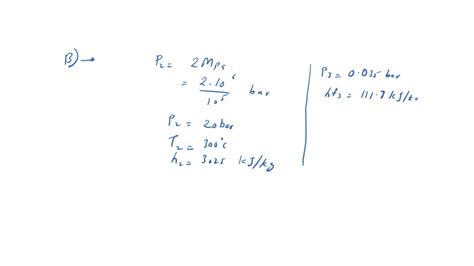 B) →
P₂ = 2 MPa
= 2.10⁶ / 10⁵ bar
P₂ = 20 bar
T₂ = 300°c
h₂ = 3025 kJ/kg
P₃ = 0.035 bar
hf₃ = 111.7 kJ/kg